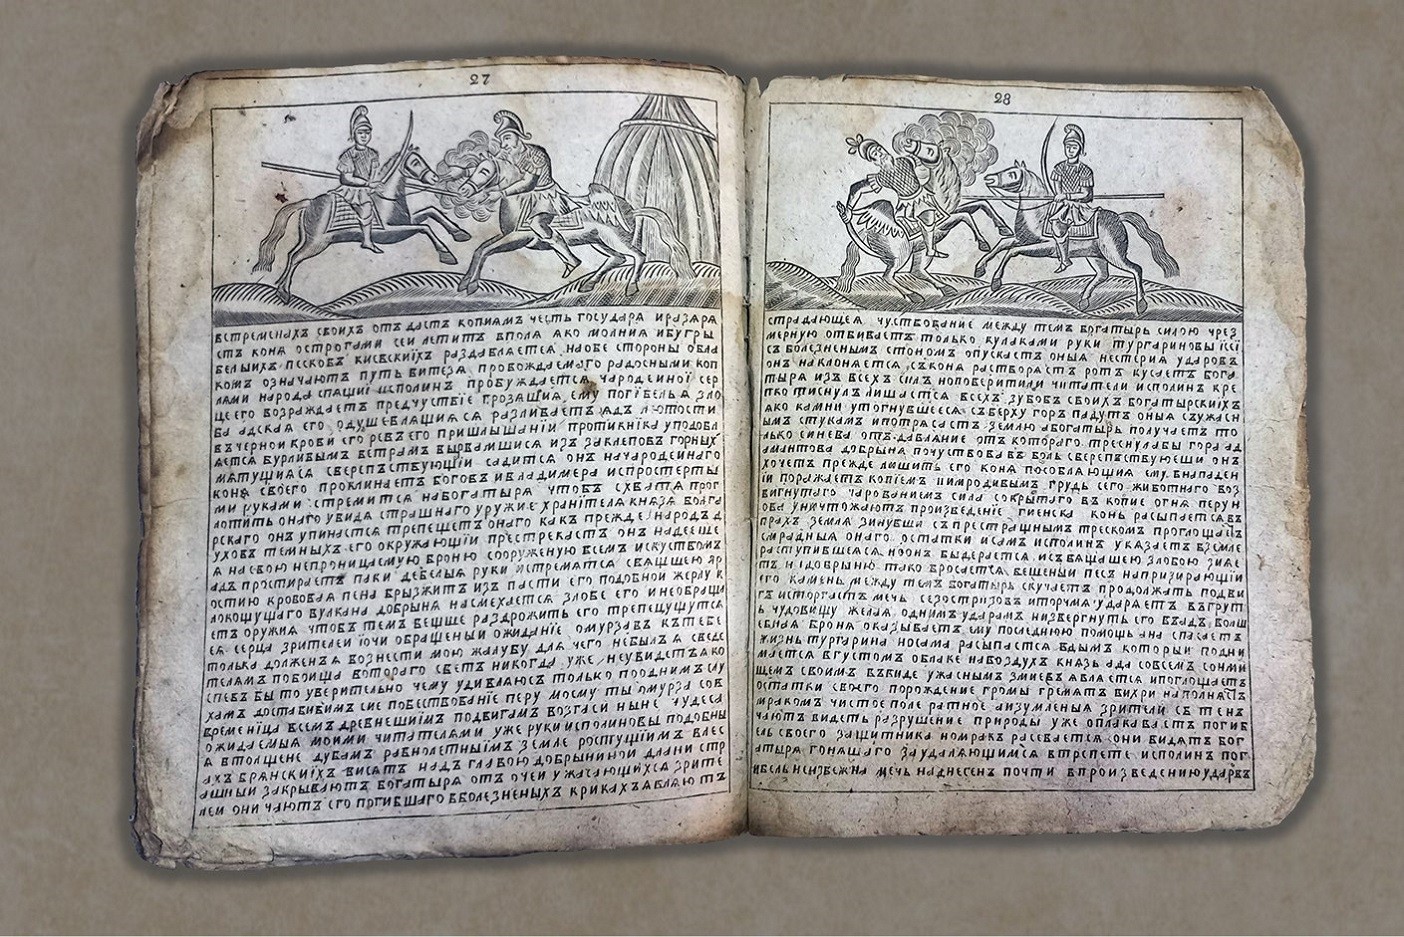 27
встременахъ своихъ отъдастъ копиямъ честь государя иразяря
стъ коня острогами сеи летитъ вполя яко молния ибугры
белыихъ песковъ киевскиїхъ раздавляетея наобе стороны обла
комъ означаютъ путь витезя провождаемаго радосными коп
лями народа спящиї исполинъ пробуждается чародеиної сер
цеего возраждаетъ предчуствіе грозящия ему погїбелья зло
ба адская его одушевлящияся разливаетъ ядъ лютости
въчернои крови его ревъего пришлышанїи противника уподобл
яется бурливымъ ветрамъ вырвавшися изъ заклеповъ горныхъ
мятущияся сверепъствующїи садится онъ начародеинаго
коня своего проклинаетъ боговъ ивладимера испростерты
ми руками стремится набогатыря чтобъ схватя прог
лотить онаго увидя страшнаго уружие хранїтеля князя болга
рскаго онъ упинастся трепещетъ онаго какъ прежде народъ д
уховъ темныхъ его окружающїи престрекастъ онъ надееше
я насвою непроницаемую броню сооруженую всемъ искуствомъ
адъ простираетъ паки дебелыя руки истремятся свящшею яр
остию крововая пена брызжитъ изъ пасти его подобнои жерлу к
локощущаго вулкана добрыня насмехается злобе его инеобраща
етъ оружия чтовъ темъ вещше раздрожить его трепещущутся
ея серца зрителеи їочи обращеныи ожидание омурзавъ къ тебе
толька долженъ я вознести мою жалубу для чего небылъ я сведе
телямъ побоища вотораго светъ никогда уже неувидетъ ако
спевъ бы то уверительно чему удивляюсъ только поодним слу
хамъ доставивимъ сие повествованїе перу моему ты омурза сов
временїца всемъ древнешимъ подвигамъ возгаси ныне чудеса
ожидаемыя моими читателями уже руки исполиновы подобны
я втолщене дубамъ равнолетныїмъ земле ростущиїмъ влес
ахъ брянскиїхъ висятъ надъ главою добрынинои длани стр
ашныи закрываютъ богатыря отъ очеи ужасающихся зрите
леи они чаютъ его погибшаго вболезненыхъ крикахъ являютъ
28
страдающея чуствование между темъ богатырь силою чрез
мерную отбиваетъ только кулаками руки тургариновы їсеї
съ болезненымъ стономъ опускастъ оныя нестерпя ударовъ
онъ наклоняется съконя растворястъ ротъ кусаетъ бога
тыря изъ всехъ силъ ноповеритили читатели исполинъ кре
тко тиснулъ лишается всехъ зубовъ своихъ богатырскихъ
яко камни утогнувшееся съверху горъ падутъ оныя съужасн
ымъ стукамъ ипотрясастъ землю абогатырь получаетъ то
лько синева отъ давлание отъ котораго треснулабы гора ад
амантова добрыня почуствова въ боль сверепъствуеши онъ
хочетъ прежде люшить его коня пособляющия ему внападен
їи поражаетъ копїемъ шимродивымъ грудь сего животнаго воз
вигнутаго чарованиемъ сила сокрытаго въ копие огня перун
ова уничтожаютъ произведение гиенска конь расыпается въ
прахъ земля зинувши съ престрашнымъ трескомъ проглощаетъ
смрадныя онаго остатки исамъ исполинъ увязаетъ вземле
распупившеяся ноонъ выдерается исъ вящашею злобою зияе
тъ нїдобрыню тако бросается вешеныи песъ наприхирающїи
его камень между темъ богатырь скучаетъ продолжать подви
гъ исторгастъ мечь сезострїзовъ иторчмя ударяетъ въгрут
ь чудовищу желая однимъ ударамъ низвергнуть его въадъ волш
ебная броня оказываетъ ему последнюю помощь она спасаетъ
жизнь тургарина носама расыпастся вдымъ которыї подни
мается вгустомъ облаке навоздухъ князь ада совсемъ сонми
щемъ своимъ въвиде ужаснымъ змиевъ является ипоглощаетъ
остатки своего порождение громы гремятъ вихри наполняютъ
мракомъ чистое поле ратное аизумленыя зрители съ тенъ
чаютъ видеть разрушение природы уже оплакавастъ погиб
ель своего защитника номракъ расевается они видятъ бог
атыря гоняшаго заудаляющимся втрепете исполинъ пог
ибель неизвежна мечь наднегенъ почти впроизведению ударвъ